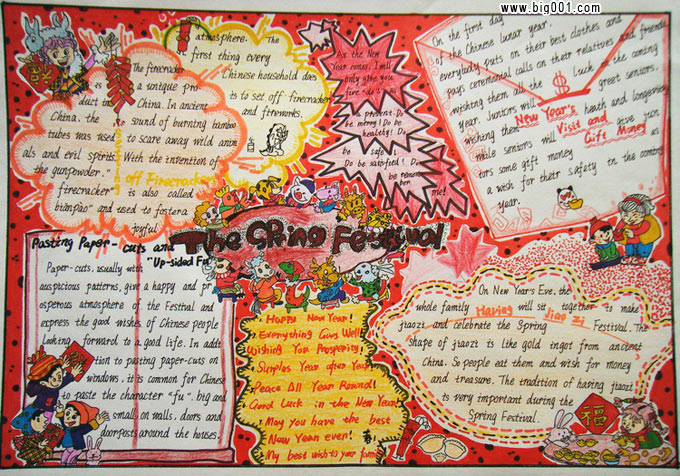 www.big001.com
The firecracker
is a unique pro
duct in China. In ancient
China, the sound of burning bamboo
tubes was used to scare away wild anim
als and evil spirits. With the invention of
the gunpowder."
off Firecracker
firecracker" is also called
bianpao" and used to foster a
joyful
atmosphere. The
first thing every
Chinese household does
is to set off firecrackers
and fireworks.
As the New
Year comes, I will
only give you
five "do's". Do
be present! Do
be merry! Do be
healthy! Do
be safe!
Do be satisfied! Do
be remember
me!
On the first day
of the Chinese lunar year.
everybody puts on their best clothes and
pays ceremonial calls on their relatives and friends
wishing them all the luck in the coming
year. Juniors will greet seniors.
wishing them health and longevity
New Year's
Visit and
Gift Money
male seniors will give jun
iors some gift money as
a wish for their safety in the coming
year.
The Spring Festival
Pasting Paper-cuts and
"Up-sided Fu"
Paper-cuts, usually with
auspicious patterns, give a happy and pr
osperous atmosphere of the Festival and
express the good wishes of Chinese people
looking forward to a good life. In addi
tion to pasting paper-cuts on
windows, it is common for Chinese
to paste the character "fu", big and
small, on walls, doors and
doorposts around the houses.
Happy New Year!
Everything Goes Well!
Wishing You Prosperity!
Surplus Year after Year
Peace All Year Round!
Good Luck in the New Year!
May you have the best
New Year ever!
My best wish to your family
On New Year's Eve, the
whole family will sit together to make
Having Jiao Zi
jiaozi and celebrate the Spring Festival. The
shape of jiaozi is like gold ingot from ancient
China. So people eat them and wish for money
and treasure. The tradition of having jiaozi
is very important during the
Spring Festival.
福